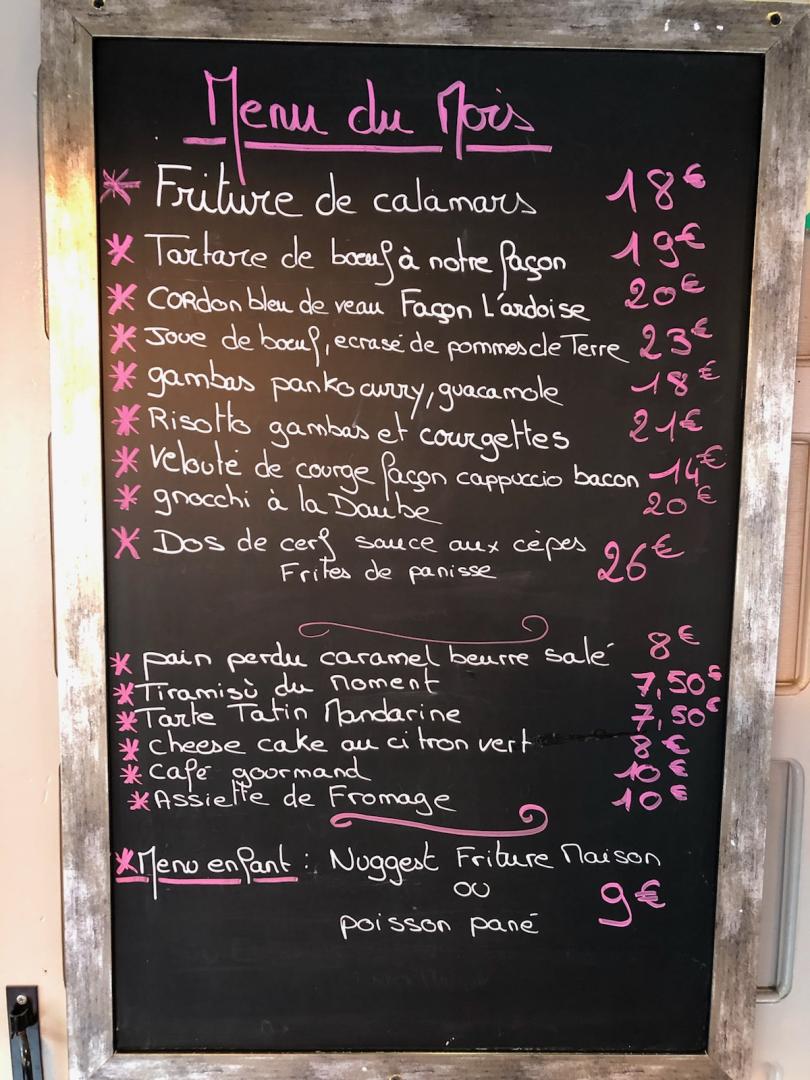 Menu du Mois
* Friture de calamars 18€
* Tartare de bœuf à notre façon 19€
* Cordon bleu de veau Façon L'ardoise 20€
* Joue de bœuf, ecrasé de pommes de Terre 23€
* gambas panko curry, guacamole 18€
* Risotto gambas et courgettes 21€
* Velouté de courge façon cappuccio bacon 14€
* gnocchi à la Daube 20€
* Dos de cerf sauce aux cèpes 26€
Frites de panisse
* pain perdu caramel beurre salé 8€
* Tiramisù du moment 7,50€
* Tarte Tatin Mandarine 7,50€
* cheese cake au citron vert 8€
* café gourmand 10€
* Assiette de Fromage 10€
* Menu enfant : Nuggest Friture Maison
ou 9€
poisson pané